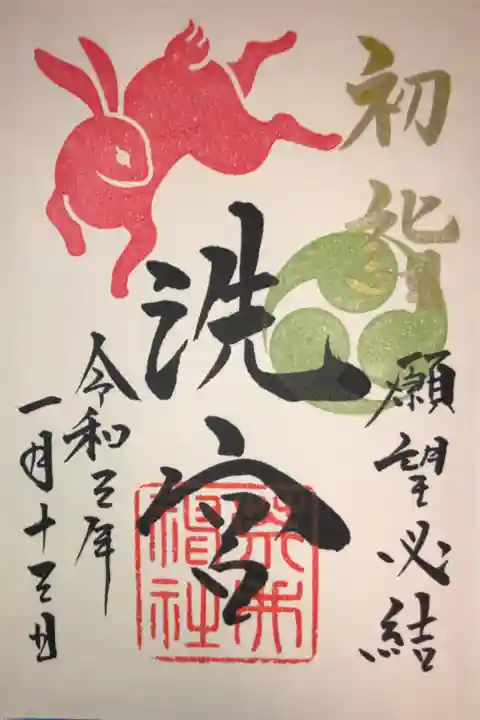 初詣
願望必結
洗宮
神社
令和三年
一月十三日